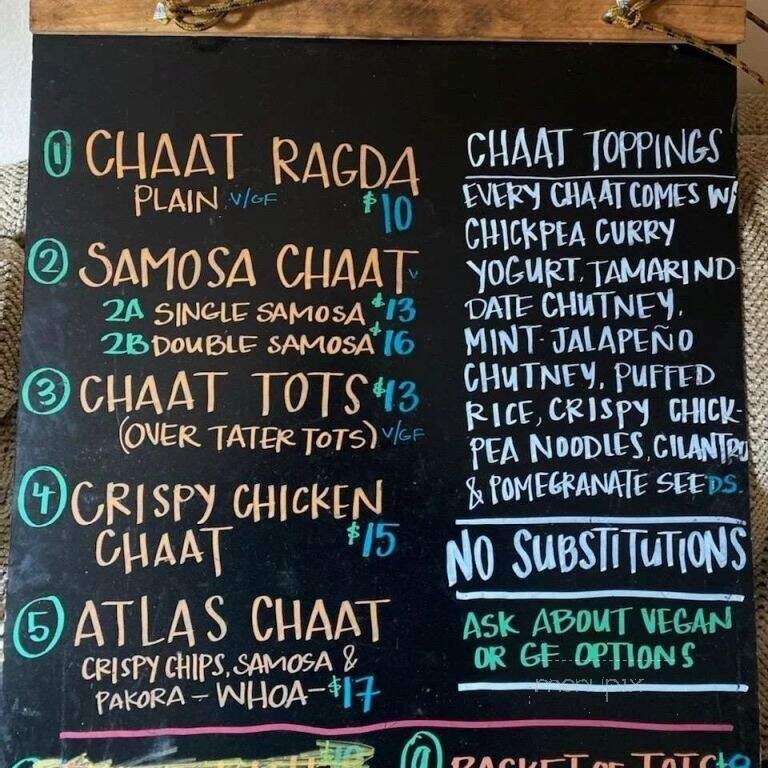 ① CHAAT RAGDA
PLAIN V/GF $10
② SAMOSA CHAAT V
2A SINGLE SAMOSA $13
2B DOUBLE SAMOSA $16
③ CHAAT TOTS $13
(OVER TATER TOTS) V/GF
④ CRISPY CHICKEN
CHAAT $15
⑤ ATLAS CHAAT
CRISPY CHIPS, SAMOSA &
PAKORA - WHOA - $17
CHAAT TOPPINGS
EVERY CHAAT COMES W/
CHICKPEA CURRY
YOGURT, TAMARIND-
DATE CHUTNEY,
MINT-JALAPEÑO
CHUTNEY, PUFFED
RICE, CRISPY CHICK-
PEA NOODLES, CILANTRO
& POMEGRANATE SEEDS.
NO SUBSTITUTIONS
ASK ABOUT VEGAN
OR GF OPTIONS
menupix
BASKET OF TOTS